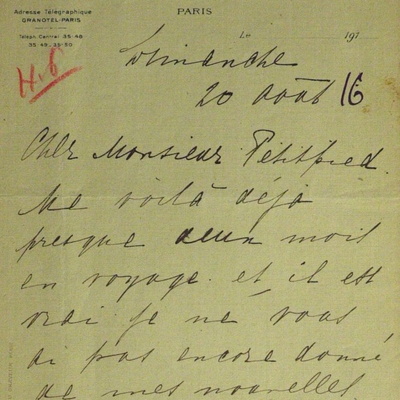 Adresse Télégraphique
GRANOTEL-PARIS
Téléph. Central 35-46
35-49, 35-50
PARIS
Le 191
H.S
Dimanche
20 août 16
Cher Monsieur Petitpied
Me voilà déjà
presque deux mois
en voyage. et il est
vrai je ne vous
ai pas encore donné
de mes nouvelles.